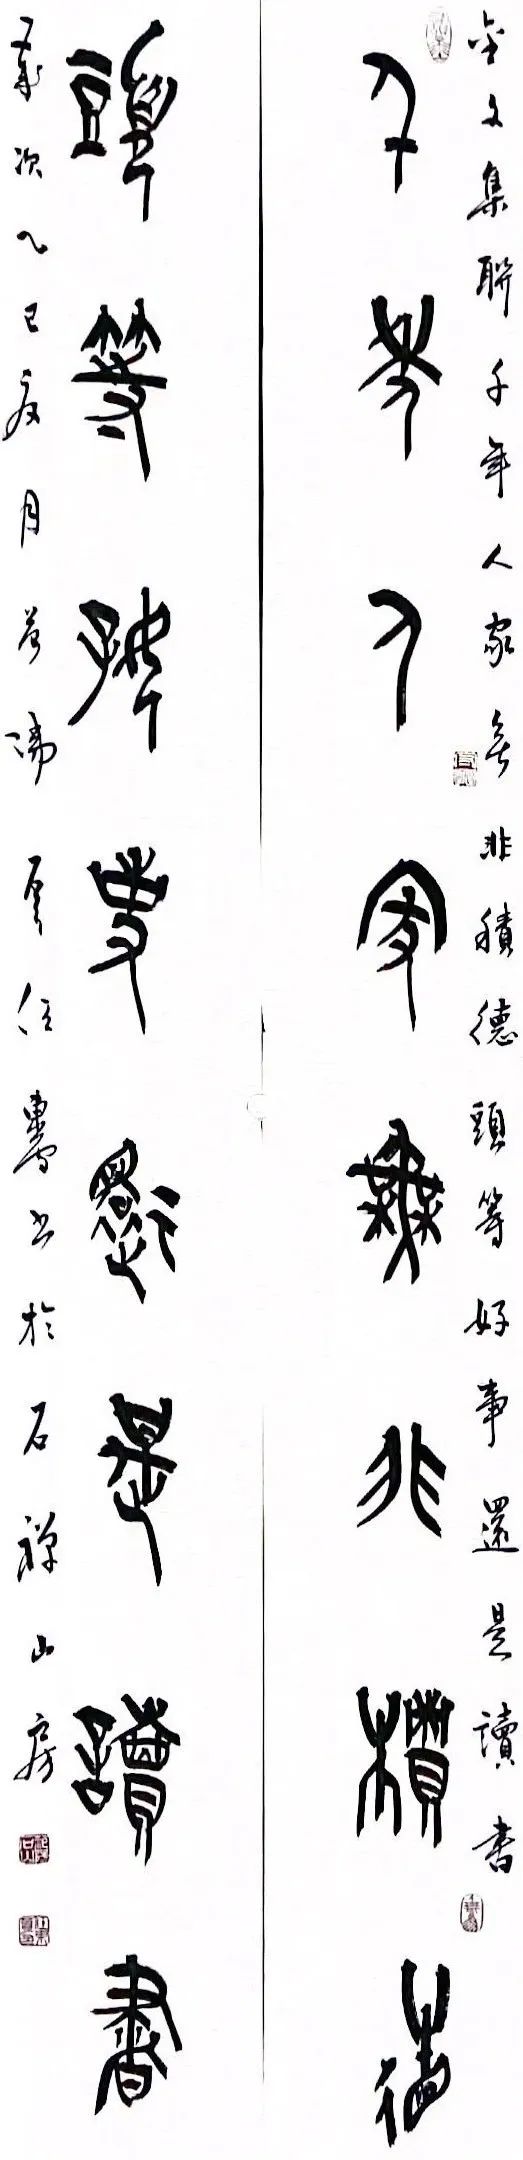 金文集联千年人家無非積德頭等好事還是讀書
千年人家無非積德
頭等好事還是讀書
歲次乙巳夏月
書於石禅山房